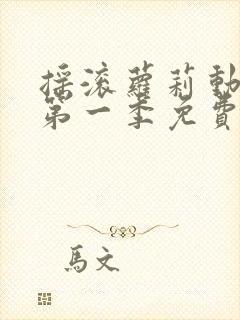 摇滚蘿莉動
第一季免費
馬文